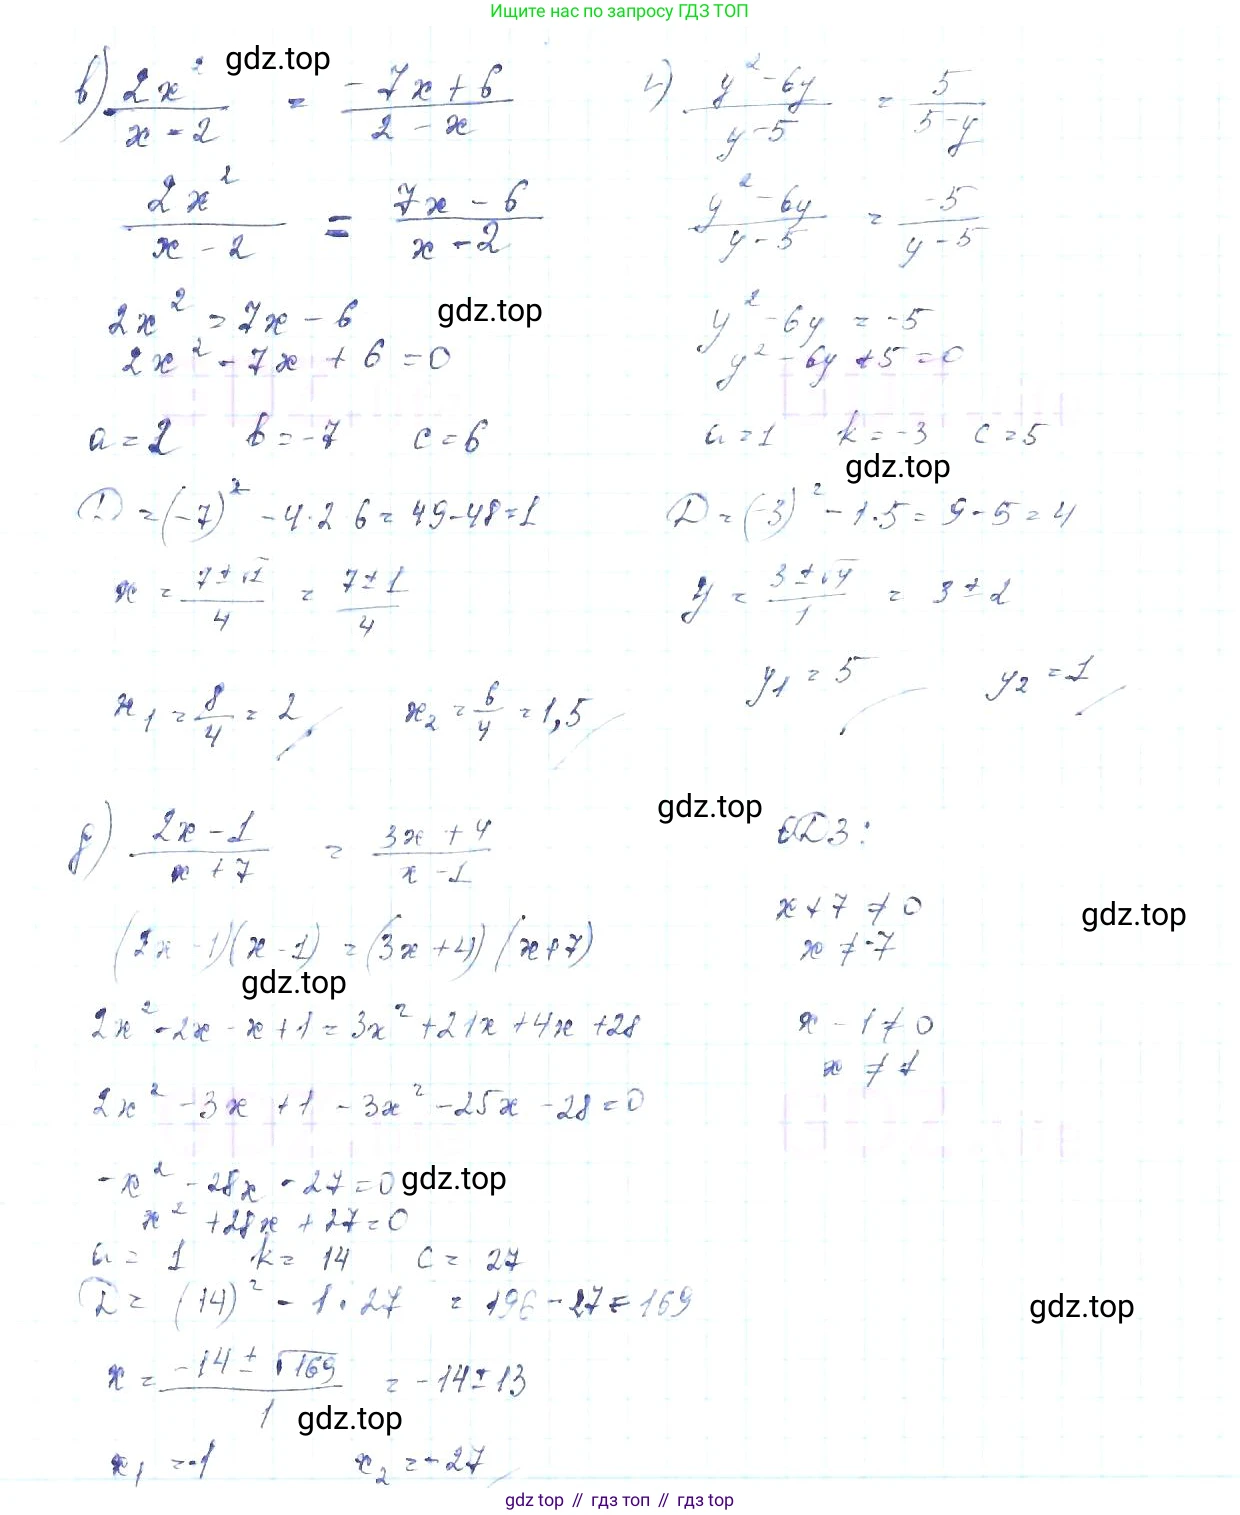 Ищите нас по запросу ГДЗ ТОП
gdz.top
в) 2x² / (x - 2) = (-7x + 6) / (2 - x)
2x² / (x - 2) = (7x - 6) / (x - 2)
2x² = 7x - 6
gdz.top
2x² - 7x + 6 = 0
a = 2 b = -7 c = 6
D = (-7)² - 4·2·6 = 49 - 48 = 1
x = (7 ± √1) / 4 = (7 ± 1) / 4
x₁ = 8/4 = 2 x₂ = 6/4 = 1,5
г) (y² - 6y) / (y - 5) = 5 / (5 - y)
(y² - 6y) / (y - 5) = -5 / (y - 5)
y² - 6y = -5
y² - 6y + 5 = 0
a = 1 k = -3 c = 5
gdz.top
D = (-3)² - 1·5 = 9 - 5 = 4
y = (3 ± √4) / 1 = 3 ± 2
y₁ = 5 y₂ = 1
gdz.top
д) (2x - 1) / (x + 7) = (3x + 4) / (x - 1)
(2x - 1)(x - 1) = (3x + 4)(x + 7)
gdz.top
2x² - 2x - x + 1 = 3x² + 21x + 4x + 28
2x² - 3x + 1 - 3x² - 25x - 28 = 0
-x² - 28x - 27 = 0
gdz.top
x² + 28x + 27 = 0
a = 1 k = 14 c = 27
D = (14)² - 1·27 = 196 - 27 = 169
x = (-14 ± √169) / 1 = -14 ± 13
gdz.top
x₁ = -1 x₂ = -27
ОДЗ:
x + 7 ≠ 0
x ≠ -7
gdz.top
x - 1 ≠ 0
x ≠ 1
gdz.top
gdz top // гдз топ // гдз top